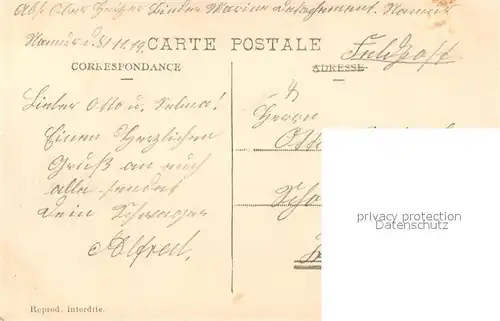 Abs. Ober Heizer Linder Marine Detachement. Namur
Namur d. 31.11.19
CARTE POSTALE
Feldpost.
CORRESPONDANCE
ADRESSE
Lieber Otto u. Selma!
Einen Herzlichen
Gruß an euch
alle sendet
Dein Schwager
Alfred.
Herrn
Otto
privacy protection
Datenschutz
Reprod. interdite.